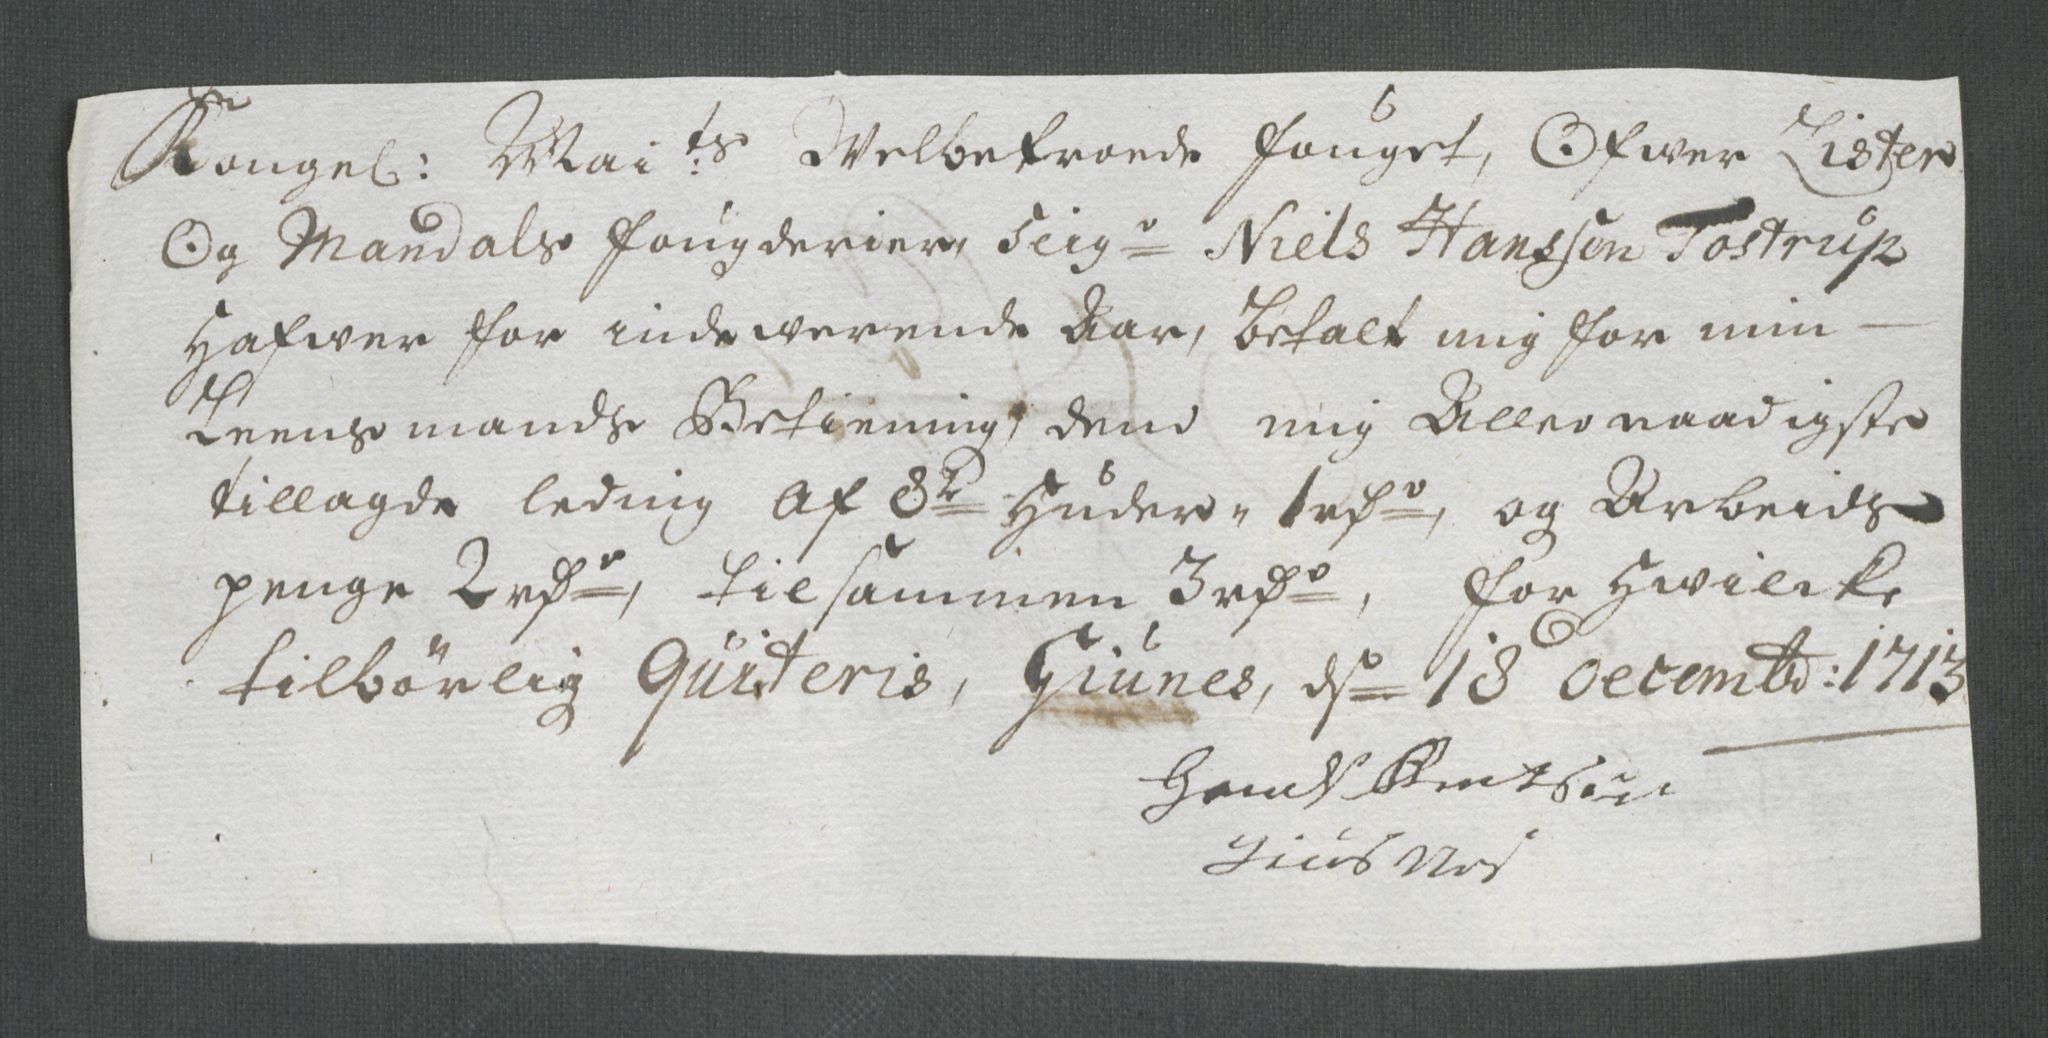 Kongel: Mai:ts Welbetroede fouget, Ofwer Lister
Og Mandals fougderier, Seigr Niels Hansson Tostrup
Hafwer for indewerende Aar, betalt mig for min
Leensmands Betiening, dend mig Allernaadigste
tillagde leding Af 8te Huder, 1 rdr, og Arbeids
penge 2 rdr, tilsammen 3 rdr, for Hwilcke
tilbörlig Quiteris, Giunes, ds 18 decembr: 1713